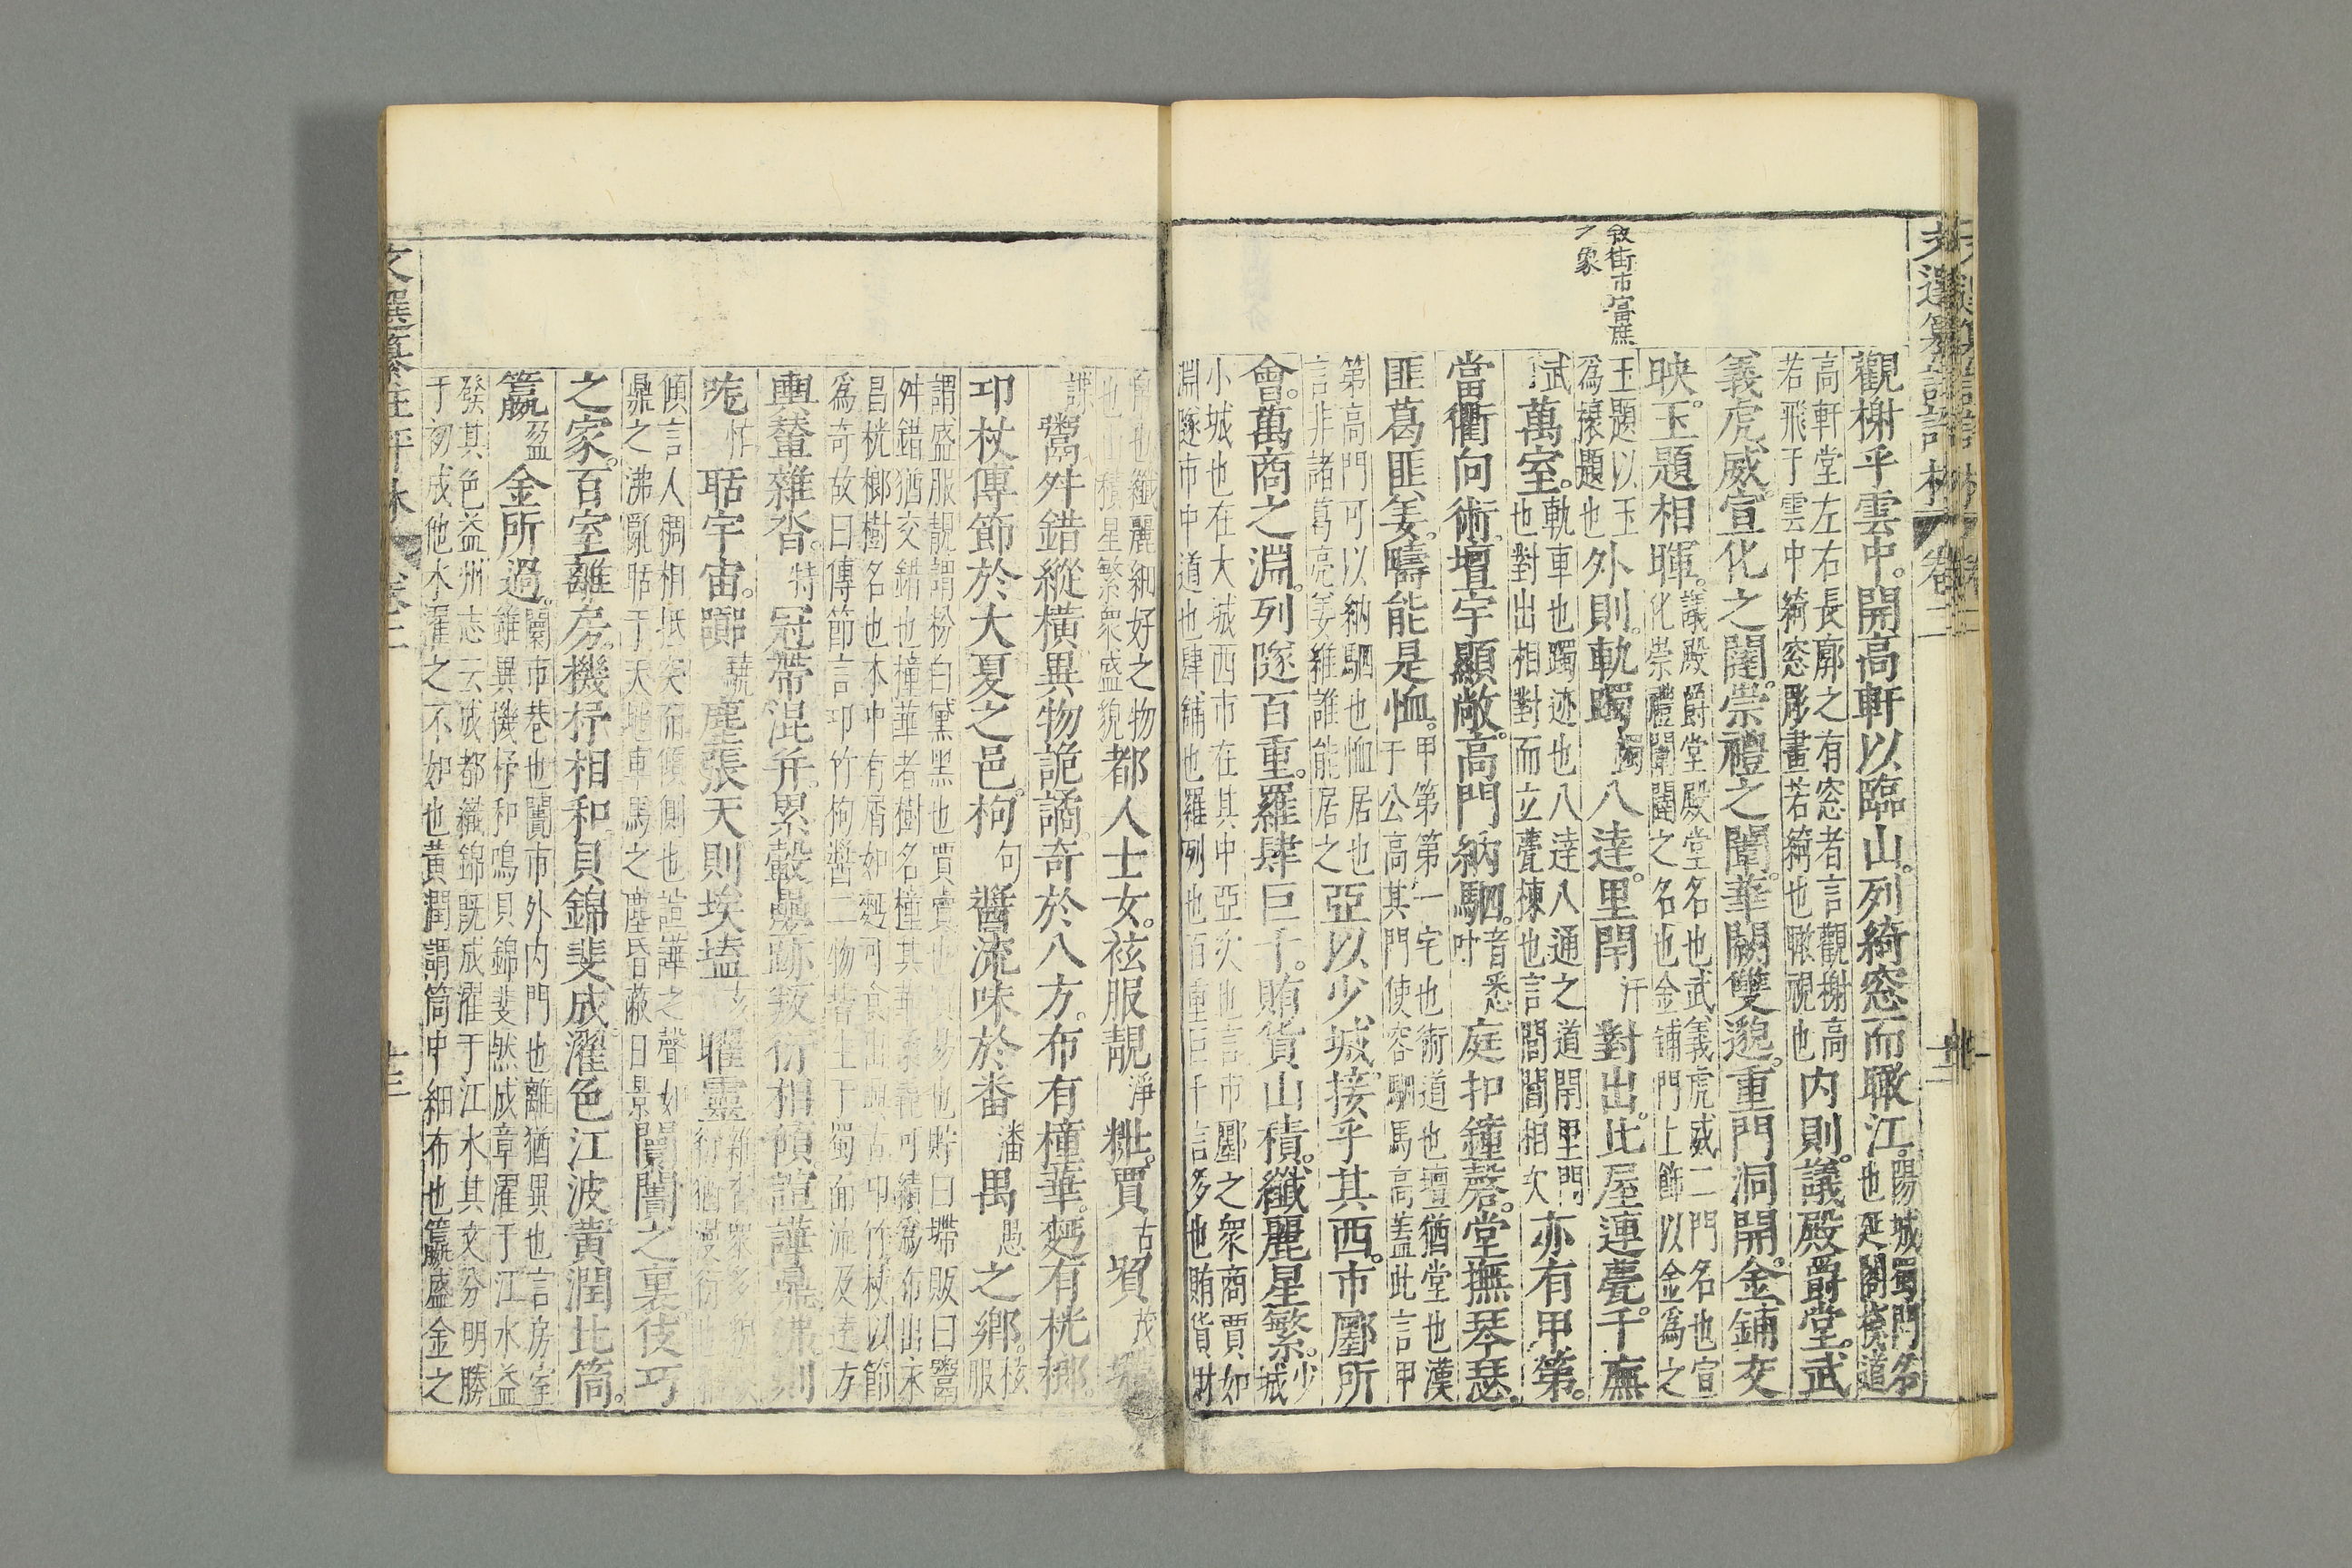 敘街市富庶
之象
觀榭乎雲中。開高軒以臨山。列綺窓而瞰江。陽城蜀門名
也延閣樓道
高軒堂左右長廓之有窓者言觀榭高
若飛于雲中綺窓彫畫若綺也瞰視也內則。議殿爵堂。武
義虎威。宣化之闥。崇禮之闈。華闕雙邈。重門洞開。金鋪交
映。玉題相暉。議殿爵堂殿堂名也武義虎威二門名也宣
化崇禮闈闥之名也金鋪門上飾以金爲之
玉題以玉
爲榱題也外則。軌躅躅八逹。里閈汗對出。比屋連甍。千廡
萬室。軌車也躅迹也八逹八通之道閈里門
也對出相對而立甍棟也言閭閻相次亦有甲第。
當衢向術。壇宇顯敞。高門納駟。音悉
叶庭扣鐘磬。堂撫琴瑟。
匪葛匪姜。疇能是恤。甲第第一宅也術道也壇猶堂也漢
于公高其門使容駟馬高蓋此言甲
第高門可以納駟也恤居也
言非諸葛亮姜維誰能居之亞以少城。接乎其西。市廛所
會。萬商之淵。列隧百重。羅肆巨千。賄貨山積。纖麗星繁。少
城
小城也在大城西市在其中亞次也言市廛之衆商賈如
淵隧市中道也肆鋪也羅列也百重巨千言多也賄貨財
也纖麗細好之物
也山積星繁衆盛貌都人士女。袨服靚淨糚。賈古貿茂
鬻舛錯縱橫異物詭譎。奇於八方。布有橦華。麪有桄榔。
邛杖傳節於大夏之邑。枸句醬流味於番潘禺愚之鄉。袨
服
謂盛服靚謂粉白黛黑也賈賣也貿易也貯曰㙜販曰鬻
舛錯猶交錯也橦華者樹名橦其華柔毳可績爲布出永
昌桄榔樹名也木中有屑如麪可食出興古邛竹杖以節
爲奇故曰傳節言邛竹枸醬二物皆生于蜀而流及遠方
輿輦雜沓。特冠帶混并。累轂疊跡。叛衍相傾。諠譁鼎沸。則
咙聒宇宙。嚻塵張天則埃壒曜靈
傾言人稠相抵突而傾側也諠譁之聲如
鼎之沸亂聒于天地車馬之塵昏蔽日景闤闠之裏伎巧
之家。百室離房。機杼相和。貝錦斐成。濯色江波。黃潤比筒。
籯盈金所過。闤市巷也闠市外內門也離猶異也言房室
雖異機杼和鳴貝錦斐然成章濯于江水益
發其色益州志云成都織錦旣成濯于江水其文分明勝
于初成他水濯之不如也黃潤謂筒中細布也籯盛金之